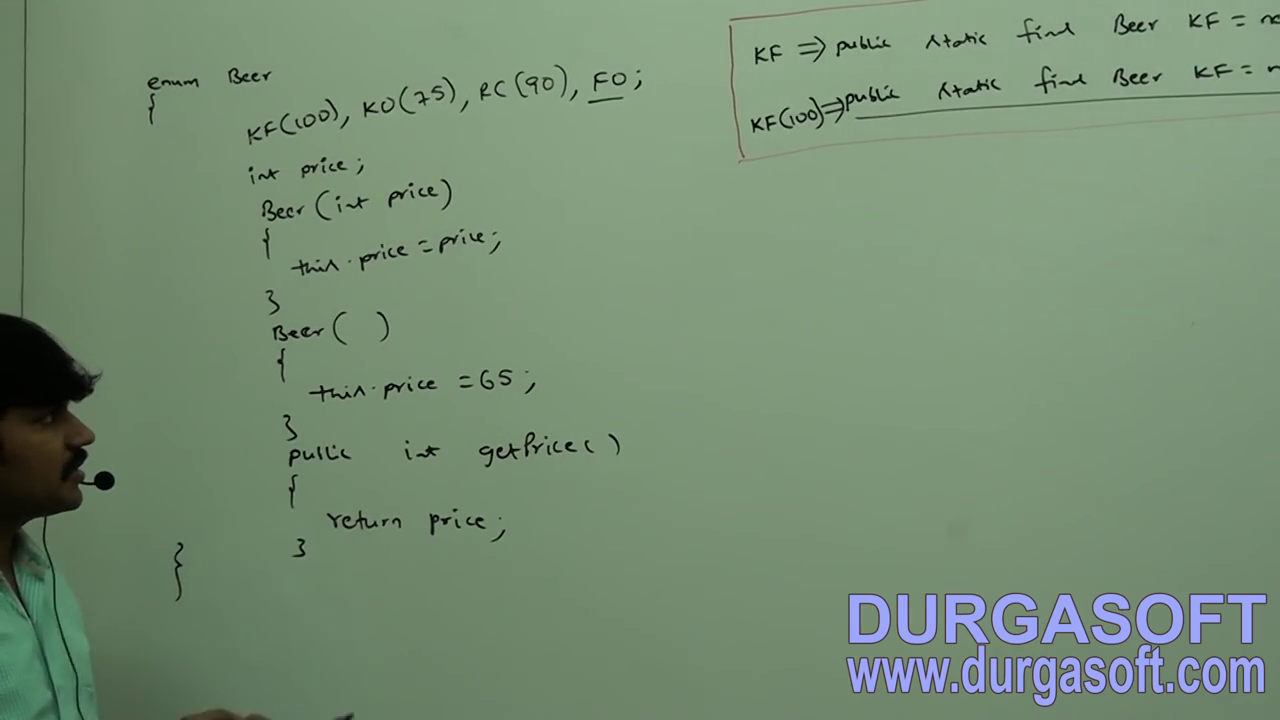 enum Beer
{
KF(100), KO(75), RC(90), FO;
int price;
Beer(int price)
{
this.price = price;
}
Beer( )
{
this.price = 65;
}
public int getPrice( )
{
return price;
}
}
KF => public static final Beer KF =
KF(100) => public static final Beer KF =
DURGASOFT
www.durgasoft.com